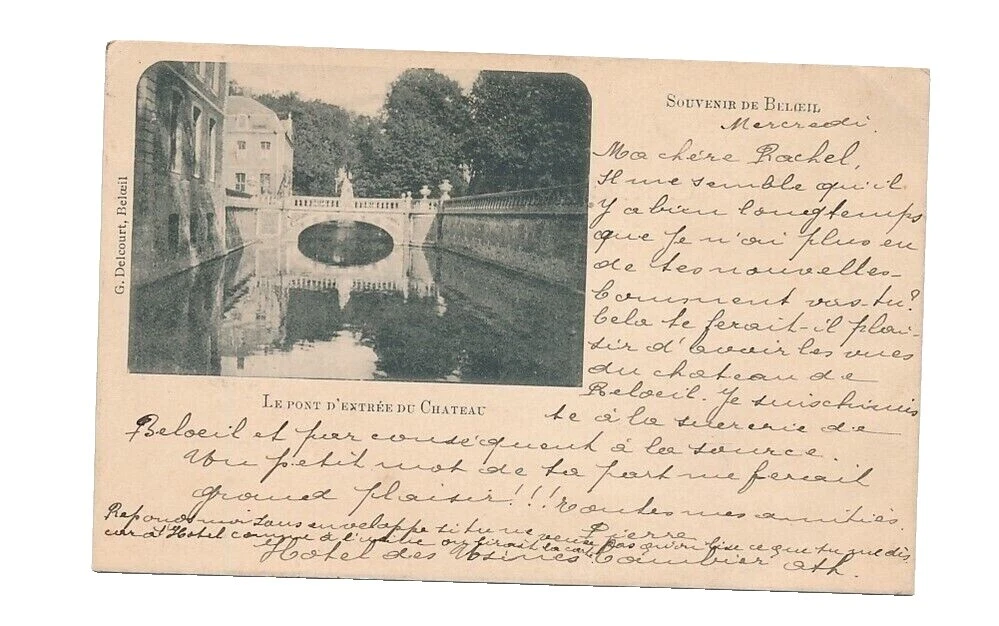 SOUVENIR DE BELŒIL
Mercredi.
Ma chère Rachel,
Il me semble qu'il
y a bien longtemps
que je n'ai plus eu
de tes nouvelles-
Comment vas-tu?
Cela te ferait-il plai-
sir d'avoir les vues
du chateau de
Beloeil. Je suis chimis
te à la sucrerie de
Beloeil et par conséquent à la source.
Un petit mot de ta part me ferait
grand plaisir!!! Toutes mes amitiés.
Pierre
Réponds moi sous enveloppe si tu ne veux pas qu'on lise ce que tu me dis
car à l'Hotel comme à l'usine on lirait ta carte
Hotel des Usines Cambier Ath.
G. Delcourt, Belœil
LE PONT D'ENTRÉE DU CHATEAU